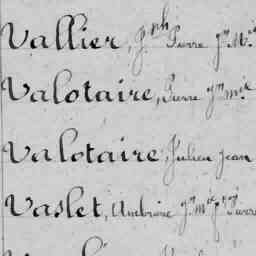 Vallier, Jph Pierre Jn M.ie
Valotaire, Pierre Jn m.ie
Valotaire, Julien Jean
Vaslet, Ambroise Jn M.ie Pierre